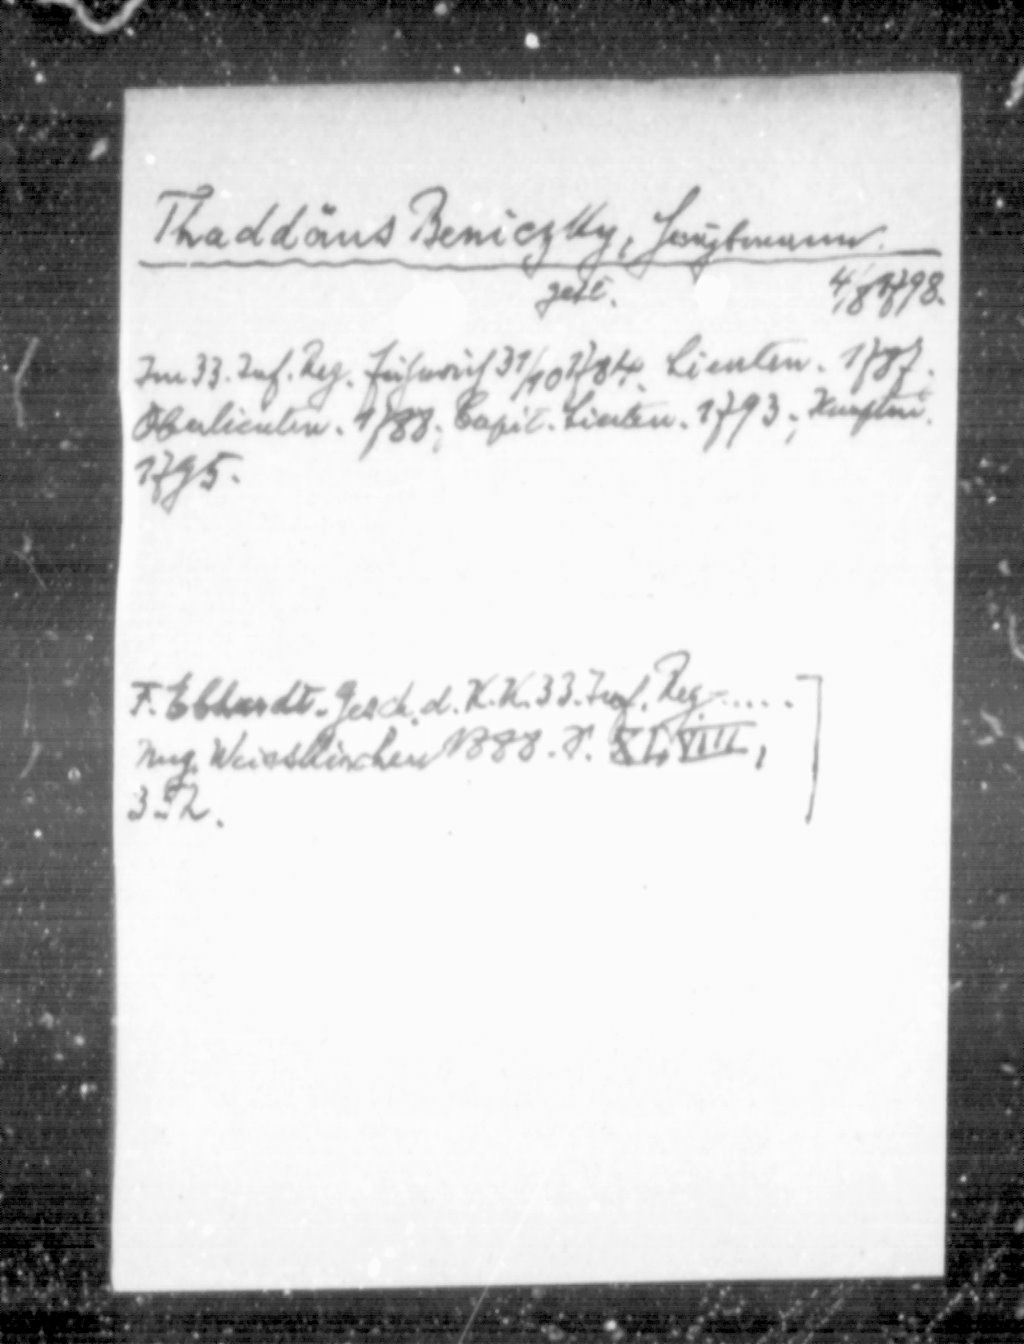 Thaddäus Beniczky, Hauptmann.
gest. 4/8 1798.
Im 33. Inf. Reg. Fähnrich 31/10 1784. Lieuten. 1787.
Oberlieuten. 1788; Capit. Lieuten. 1793; Hauptm.
1795.
F. Ebhardt. Gesch. d. K. K. 33. Inf. Reg.....
Ung. Weisskirchen 1888. S. XLVIII,
352.